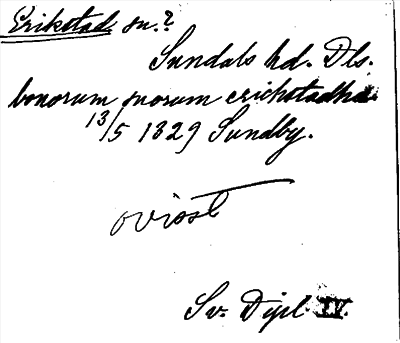 Erikstad sn.?
Sundals hd. Dls.
bonorum suorum erichstadha
13/5 1329 Sundby.
ovisst
Sv. Dipl. IV.